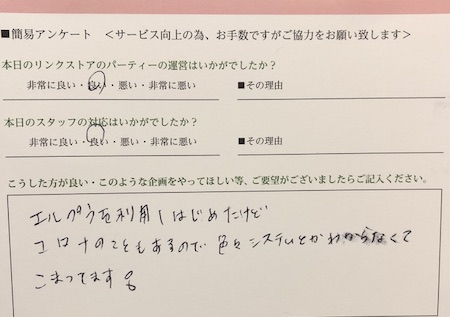 ■簡易アンケート ＜サービス向上の為、お手数ですがご協力をお願い致します＞
本日のリンクストアのパーティーの運営はいかがでしたか？
非常に良い・良い・悪い・非常に悪い ■その理由
本日のスタッフの対応はいかがでしたか？
非常に良い・良い・悪い・非常に悪い ■その理由
こうした方が良い・このような企画をやってほしい等、ご要望がございましたらご記入ください。
利用しはじめたけど
コロナのこともあるので 色々システムとかわからなくて
こまってます